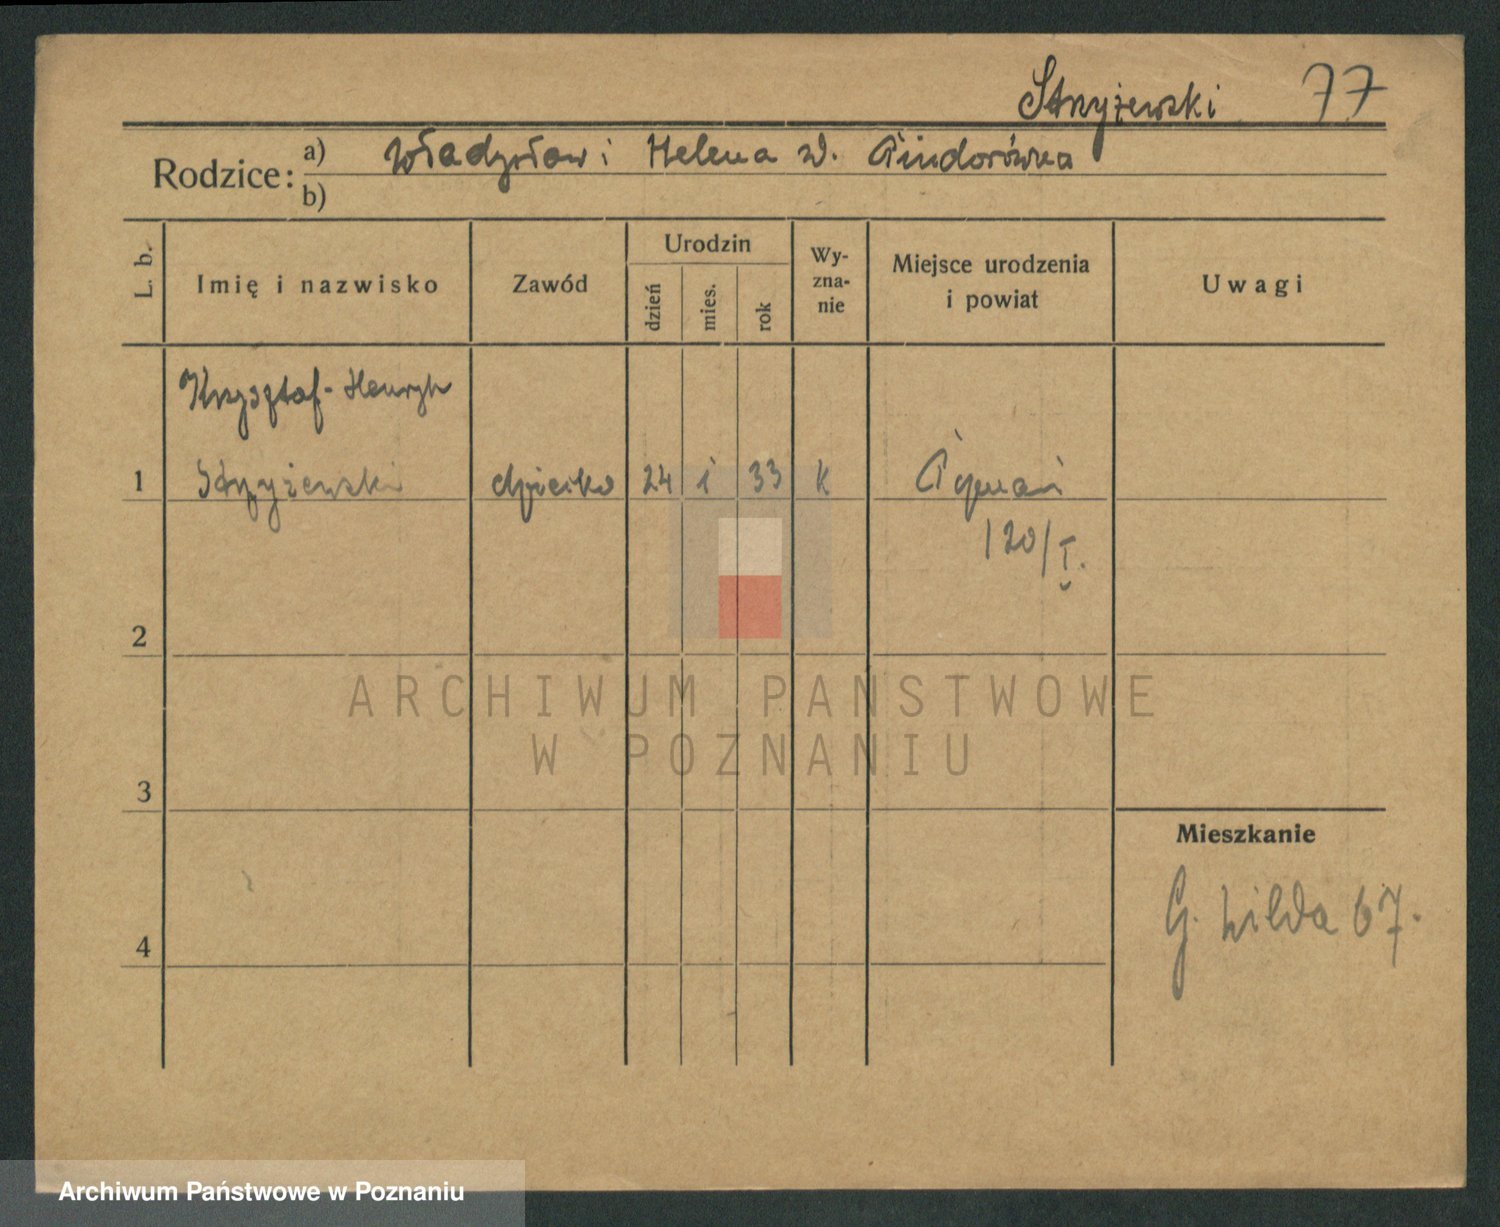 Stryżewski 77
Rodzice: a) Władysław i Helena z d. Pindorówna
b)
L. b. Imię i nazwisko Zawód Urodzin dzień mies. rok Wy-zna-nie Miejsce urodzenia i powiat Uwagi
Krzysztof-Henryk
1 Stryżewski dziecko 24 1 33 k Poznań
120/I.
2
ARCHIWUM PAŃSTWOWE
W POZNANIU
3
Mieszkanie
G. Wilda 67.
4
Archiwum Państwowe w Poznaniu